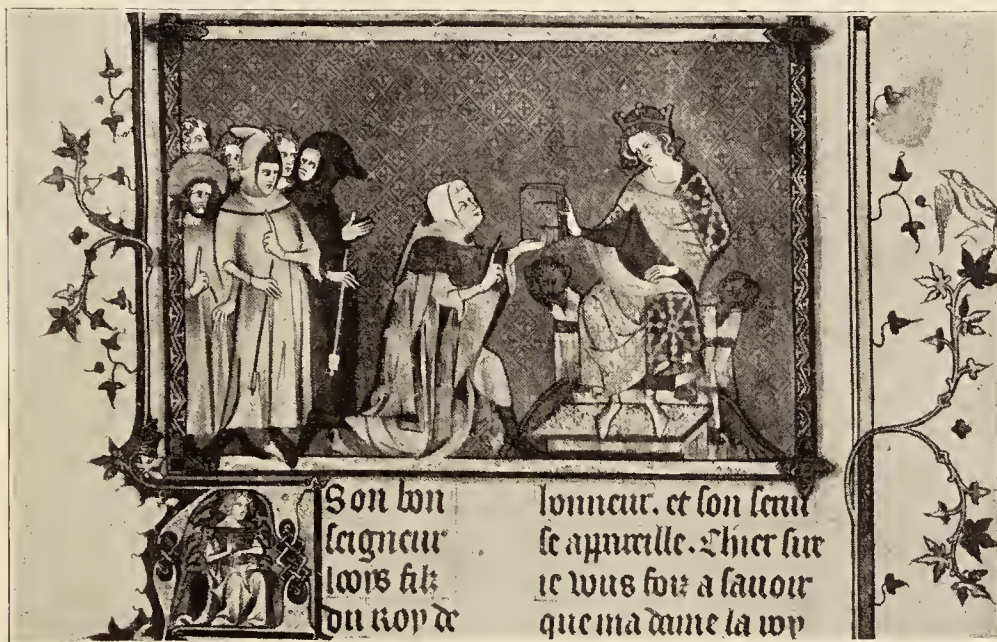 A Son bon
seigneur
loois filz
du Roy de
honneur. et son serui
se appareille. Chier sire
ie vous foiz a sauoir
que ma dame la roy